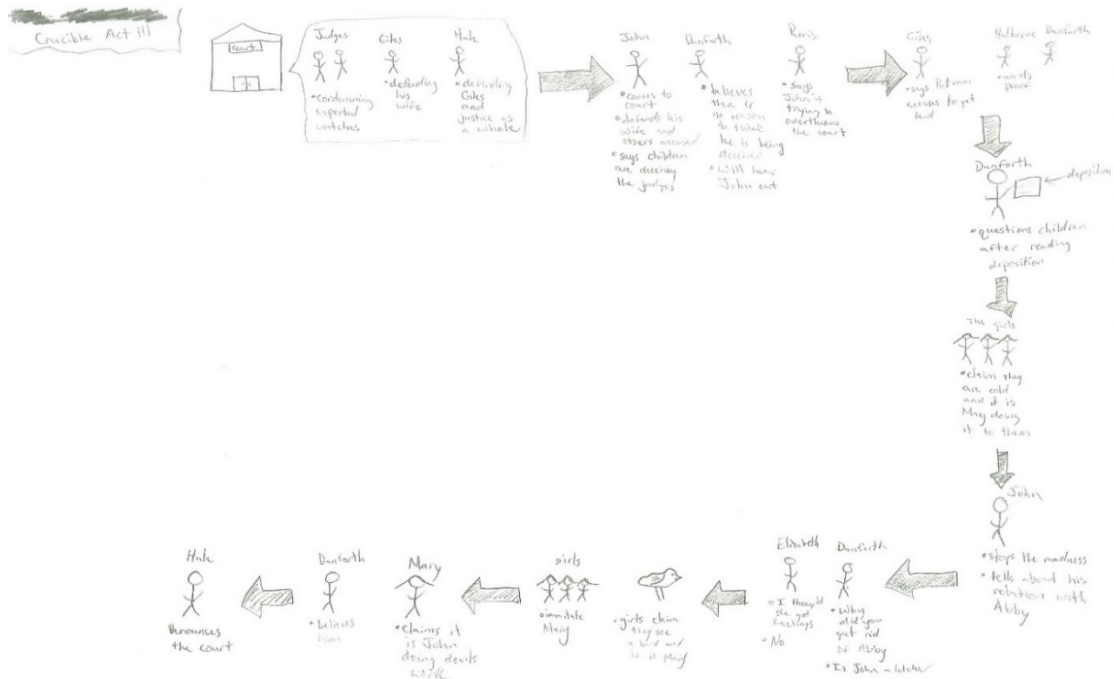 Crucible Act III
Court
Judges
• Condemning
expected
witches
Giles
• defending
his
wife
Hale
• defending
Giles
and
justice as
a whole
John
• comes to
court
• defends his
wife and
others accused
• says children
are deceiving
the judges
Danforth
• believes
there is
no reason
to think
he is being
deceived
• will hear
John out
Parris
• says
John is
trying to
overthrow
the court
Giles
• says Putman
accuses to get
land
Hathorne
• wants
proof
Danforth
Danforth
deposition
• questions children
after reading
deposition
The girls
• claim they
are cold
and it is
Mary doing
it to them
John
• stops the madness
• tells about his
relation with
Abby
Elizabeth
• I thought
she got
feelings
• No
Danforth
• Why
did you
get rid
of Abby
• Is John a lecher
• girls claim
they see
a bird and
it is Mary
girls
• immitate
Mary
Mary
• Claims it
is John
doing devils
work
Danforth
• believes
him
Hale
Denounces
the court